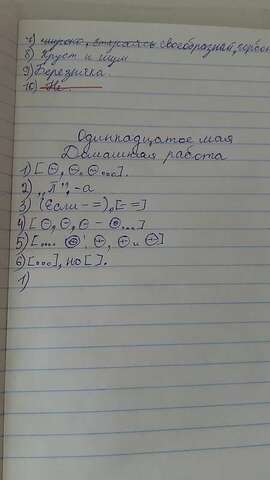 7) широко, стараясь своеобразный,
8) Хруст и шум
9) Березничка.
10) Не
Одиннадцатое мая
Домашняя работа
1) [⊖, ⊖, ⊖...].
2) „П“, - а
3) (Если - =), [- =]
4) [⊖, ⊖, ⊖ - ...]
5) [.... : ⊕, ⊕ и ⊕]
6) [...], но [ ].
1)